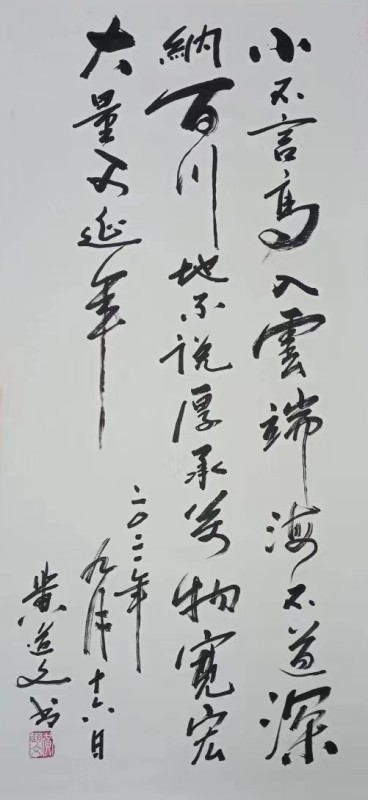 山不言高入雲端海不道深
納百川地不说厚承万物寬宏
大量又延年
二〇二二年
九月十六日
黄文书